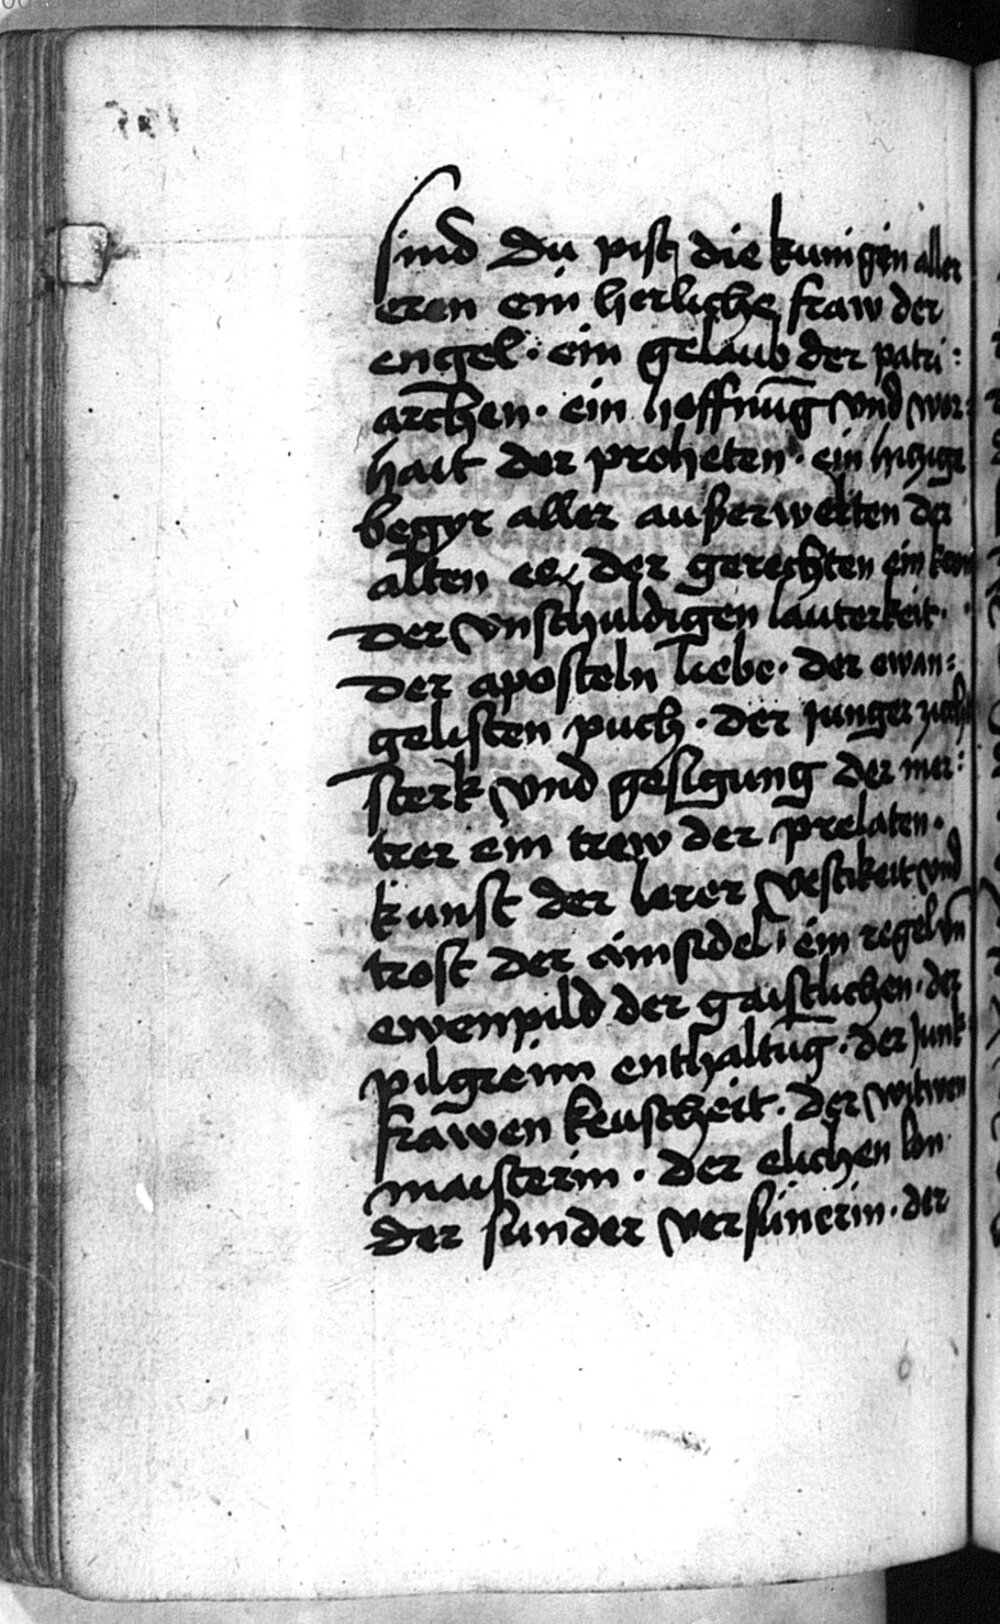 sind du pist die kunigin aller
eren ein herliche fraw der
engel · ein gelaub der patri:
archen · ein hoffnu̅g vnd wor:
hait der proheten · ein hiczige
begyr aller außerwelten der
alten ee der gerechten ein kron
der vnschuldigen lauterkeit ·
der aposteln liebe · der ewan:
gelisten puch · der Junger zucht
sterk vnd gesigung der mer:
trer ein trew der prelaten ·
kunst der lerer vestikeit vnd
trost der ainsidel · ein regel vn̅
ewenpild der gaistlichen · der
pilgreim enthaltu̅g · der Junk
frawen keuscheit · der witwen
maisterin · der elichen lon
der sunder versünerin · der